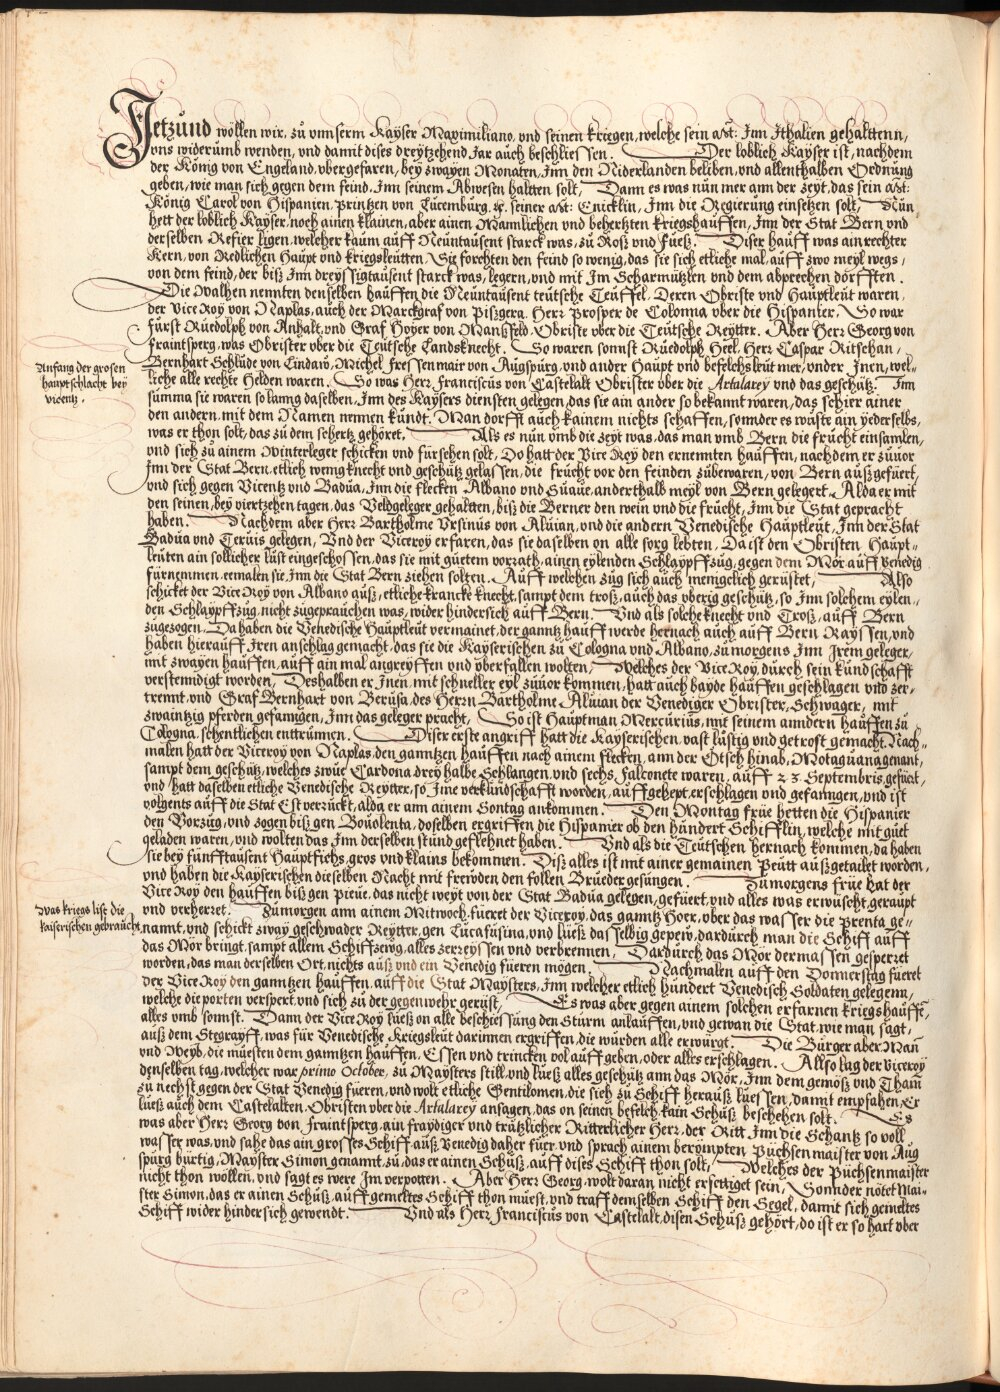 Jetzund wöllen wir, zu vnnserm Kayser Maximiliano, vnd seinen kriegen, welche sein Mt: Inn Ithalien gehalttenn,
vns widerumb wenden, vnd damit dises dreytzehend Jar auch beschliessen. Der loblich Kayser ist, nachdem
der König von Engeland, vbergefaren, bey zwayen Monaten, Inn den Niderlanden beliben, vnd allenthalben Ordnung
geben, wie man sich gegen dem feind, Inn seinem Abwesen haltten solt, Dann es was nun mer ann der zeyt, das sein Mt:
König Carol von Hispanien, printzen von Lücemburg, &c. seiner Mt: Enicklin, Inn die Regierung einsetzen solt, Nün
hett der loblich Kayser, noch ainen klainen, aber ainen Mannlichen vnd behertzten kriegshauffen, Inn der Stat Bern vnd
derselben Refier ligen, welcher kaum auff Neüntausent starck was, zu Rosz vnd Füesz. Diser hauff was ain rechter
kern, von Redlichen Haupt vnd kriegsleütten, Sy forchten den feind so wenig, das sie sich etliche mal, auff zwo meyl wegs,
von dem feind, der bisz Inn dreyssigtausent starck was, legern, vnd mit Im Scharmützlen vnd dem abprechen dörfften.
Die Walhen nennten denselben hauffen, die Neüntausent teütsche Teüffel. Deren Obriste vnd Hauptleüt waren,
der Vice Roy von Naplas, auch der Marckgraf von Piszgera, Herr Prosper de Colonna vber die Hispanier. So war
fürst Rüedolph von Anhalt, vnd Graf Hoyer von Manszfeld, Obriste vber die Teütsche Reytter. Aber Herr Georg von
Fraintsperg, was Obrister vber die Teütsche Landsknecht. So waren sonnst Rüedolph Heel, Herr Caspar Ritschan,
Anfang der grosen
hauptschlacht bey
vicentz.
Bernhart Schlüde von Lindaw, Michel Fressenmair von Augspürg, vnd ander Haupt vnd befelchsleüt mer, vnder Inen, wel-
liche alle rechte Helden waren. So was Herr Franciscus von Castelalt Obrister vber die Artalarey vnd das geschütz. Inn
summa sie waren so lanng daselben, Inn des Kaysers diensten gelegen, das sie ain ander so bekannt waren, das schier ainer
den andern, mit dem Namen nennen kündt. Man dorfft auch kainem nichts schaffen, sonnder es wüste ain yederselbs,
was er thon solt, das zu dem schertz gehöret. Als es nün vmb die zeyt was, das man vmb Bern die frücht einsamlen,
vnd sich zu ainem Winterleger schicken vnd fürsehen solt, Do hatt der Vice Roy den ernennten hauffen, nachdem er züuor
Inn der Stat Bern, etlich wenig knecht vnd geschütz gelassen, die frücht vor den feinden zübewaren, von Bern auszgefüert,
vnd sich gegen Vicentz vnd Badüa, Inn die flecken Albano vnd Süaüe, anderthalb meyl von Bern gelegert, Alda er mit
den seinen, bey viertzehen tagen, das Veldgeleger gehaltten, bisz die Berner den wein vnd die frücht, Inn die Stat gepracht
haben. Nachdem aber Herr Bartholme Vrsinüs von Alüian, vnd die andern Venedische Hauptleüt, Inn der Stat
Badüa vnd Teruis gelegen, Vnd der Viceroy erfaren, das sie daselben on alle sorg lebten, Da ist den Obristen, Haupt-
leüten ain sollicher lüst eingeschossen, das sie mit güetem vorrath, ainen eylenden Schlaypffzug, gegen dem Mör auff Venedig
fürnemmen, eemalen sie, Inn die Stat Bern ziehen solten. Auff welchen züg sich auch menigclich gerüstet, Also
schicket der Vice Roy von Albano ausz, etliche krancke knecht, sampt dem trosz, auch das vberig geschütz, so Inn solchem eylen-
den Schlaypffzüg, nicht zügeprauchen was, wider hindersich auff Bern. Vnd als solche knecht vnd Trosz, auff Bern
zügezogen, Da haben die Venedische Hauptleüt vermainet, der ganntz hauff werde hernach auch auff Bern Rayssen, vnd
haben hierauff Iren anschlag gemacht, das sie die Kayserischen zu Cologna vnd Albano, zu morgens Inn Irem geleger,
mit zwayen hauffen, auff ain mal angreyffen vnd vberfallen wolten, Welches der Vice Roy, durch sein kündschafft
verstenndigt worden, Deshalben er Inen, mit schneller eyl züuor kommen, hatt auch bayde hauffen geschlagen vnd zer-
trennt, vnd Graf Bernhart von Berüsa, des Herrn Bartholme Aluian der Venediger Obrister, Schwager, mit
zwaintzig pferden gefanngen, Inn das geleger pracht, So ist Hauptman Mercürius, mit seinem anndern hauffen zu
Cologna, schentlichen enttrunnen. Diser erste angriff hatt die Kayserischen, vast lüstig vnd getrost gemacht. Nach-
malen hatt der Viceroy von Naplas, den ganntzen hauffen nach ainem flecken, ann der Etsch hinab, Motaguana genant,
sampt dem geschütz, welches zwüe Cardona, drey halbe Schlangen, vnd sechs Falconete waren, auff 23. Septembris, gefüert,
vnd hatt daselben etliche Venedische Reytter, so Ime verkündschafft worden, auffgehept, erschlagen vnd gefanngen, vnd ist
volgents auff die Stat Est verrückt, alda er ann ainem Sontag ankommen. Den Montag früe hetten die Hispanier
den Vorzüg, vnd zogen bisz gen Bouolenta, doselben ergriffen die Hispanier ob den hündert Schifflin, welche mit güet
geladen waren, vnd wolten das Inn derselben stünd geflehnet haben. Vnd als die Teütschen hernach kommen, da haben
sie bey fünfftausent Hauptfichs, gros vnd klains bekommen. Disz alles ist mit ainer gemainen Peutt auszgetailet worden,
vnd haben die Kayserischen dieselben Nacht mit frewden den follen Brüeder gesungen. Zumorgens früe hat der
Vice Roy den hauffen bisz gen Pieue, das nicht weyt von der Stat Badüa gelegen, gefüert, vnd alles was er wüscht, geraupt
Was kriegs list die
kaiserischen gebraucht.
vnd verherzet. Zümorgen ann ainem Mitwoch, füeret der Viceroy, das ganntz Hoer, vber das wasser die Prenta ge-
namt, vnd schickt zway geschwader Reytter, gen Lucafusina, vnd lüesz dasselbig gepew, dardürch man die Schiff auff
das Mör bringt, sampt allem Schiffzewg, alles zerreyssen vnd verbrennen, Dardürch das Mör dermassen gesperzet
worden, das man derselben Ort, nichts ausz vnd ein Venedig füeren mögen. Nachmalen auff den Donnerstag füeret
der Vice Roy den ganntzen hauffen, auff die Stat Maysters, Inn welcher etlich hündert Venedisch Soldaten gelegenn,
welche die porten versperrt, vnd sich zu der gegenwehr gerüst, Es was aber gegen ainem solchen erfarnen kriegshauffen,
alles vmb sonnst. Dann der Vice Roy lüesz on alle beschiessung den Stürm anlauffen, vnd gewan die Stat, wie man sagt,
ausz dem Stegrayff, was für Venedische Kriegsleüt darinnen ergriffen, die würden alle erwürgt. Die Bürger aber, Man
vnd Weyb, die müesten dem ganntzen hauffen, Essen vnd trincken vol auff geben, oder alles erschlagen. Allso lag der Viceroy
denselben tag, welcher war primo Octobr, zu Maysters still, vnd lüesz alles geschütz ann das Mör, Inn dem gemösz vnd Tham
zu nechst gegen der Stat Venedig füeren, vnd wolt etliche Gentilomen, die sich zu Schiff herausz lüessen, damit empfahen, Er
lüesz auch dem Castelalten, Obristen vber die Artalarey ansagen, das on seinen befelch, kain Schusz beschehen solt. Es
was aber Herr Georg von Fraintsperg, ain fraydiger vnd trützlicher Ritterlicher Herr, der Ritt Inn die Schantz so voll
wasser was, vnd sahe das ain grosses Schiff ausz Venedig daher füer, vnd sprach ainem berympten Püchsenmaister von Aug
spürg bürtig, Mayster Simon genannt, zu, das er ainen Schüsz, auff dises Schiff thon solt, Welches der Püchsenmaister
nicht thon wöllen, vnd sagt es were Im verpotten. Aber Herr Georg, wolt daran nicht ersettiget sein, Sonnder nötet Mai-
ster Simon, das er ainen Schüsz, auff gemeltes Schiff thon müest, vnd traff demselben Schiff den Segel, damit sich gemeltes
Schiff wider hindersich gewendt. Vnd als Herr Franciscüs von Castelalt, disen Schüsz gehört, do ist er so hart vber